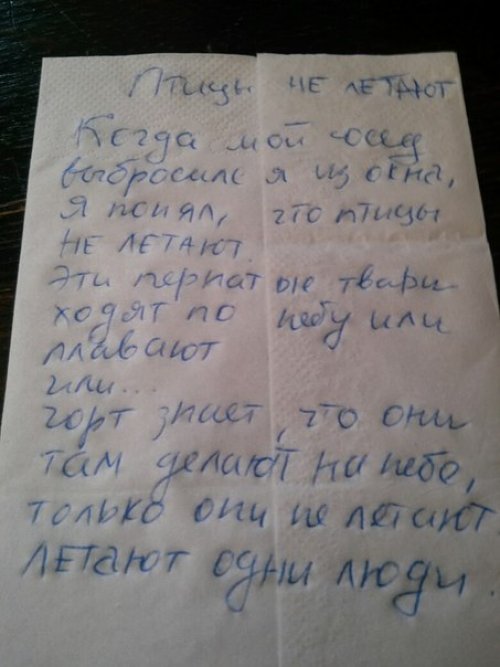 Птицы НЕ ЛЕТАЮТ
Когда мой сосед
выбросился из окна,
я понял, что птицы
НЕ ЛЕТАЮТ.
Эти пернатые твари
ходят по небу или
плавают
или...
чорт знает, что они
там делают на небе,
только они не летают.
ЛЕТАЮТ одни люди.